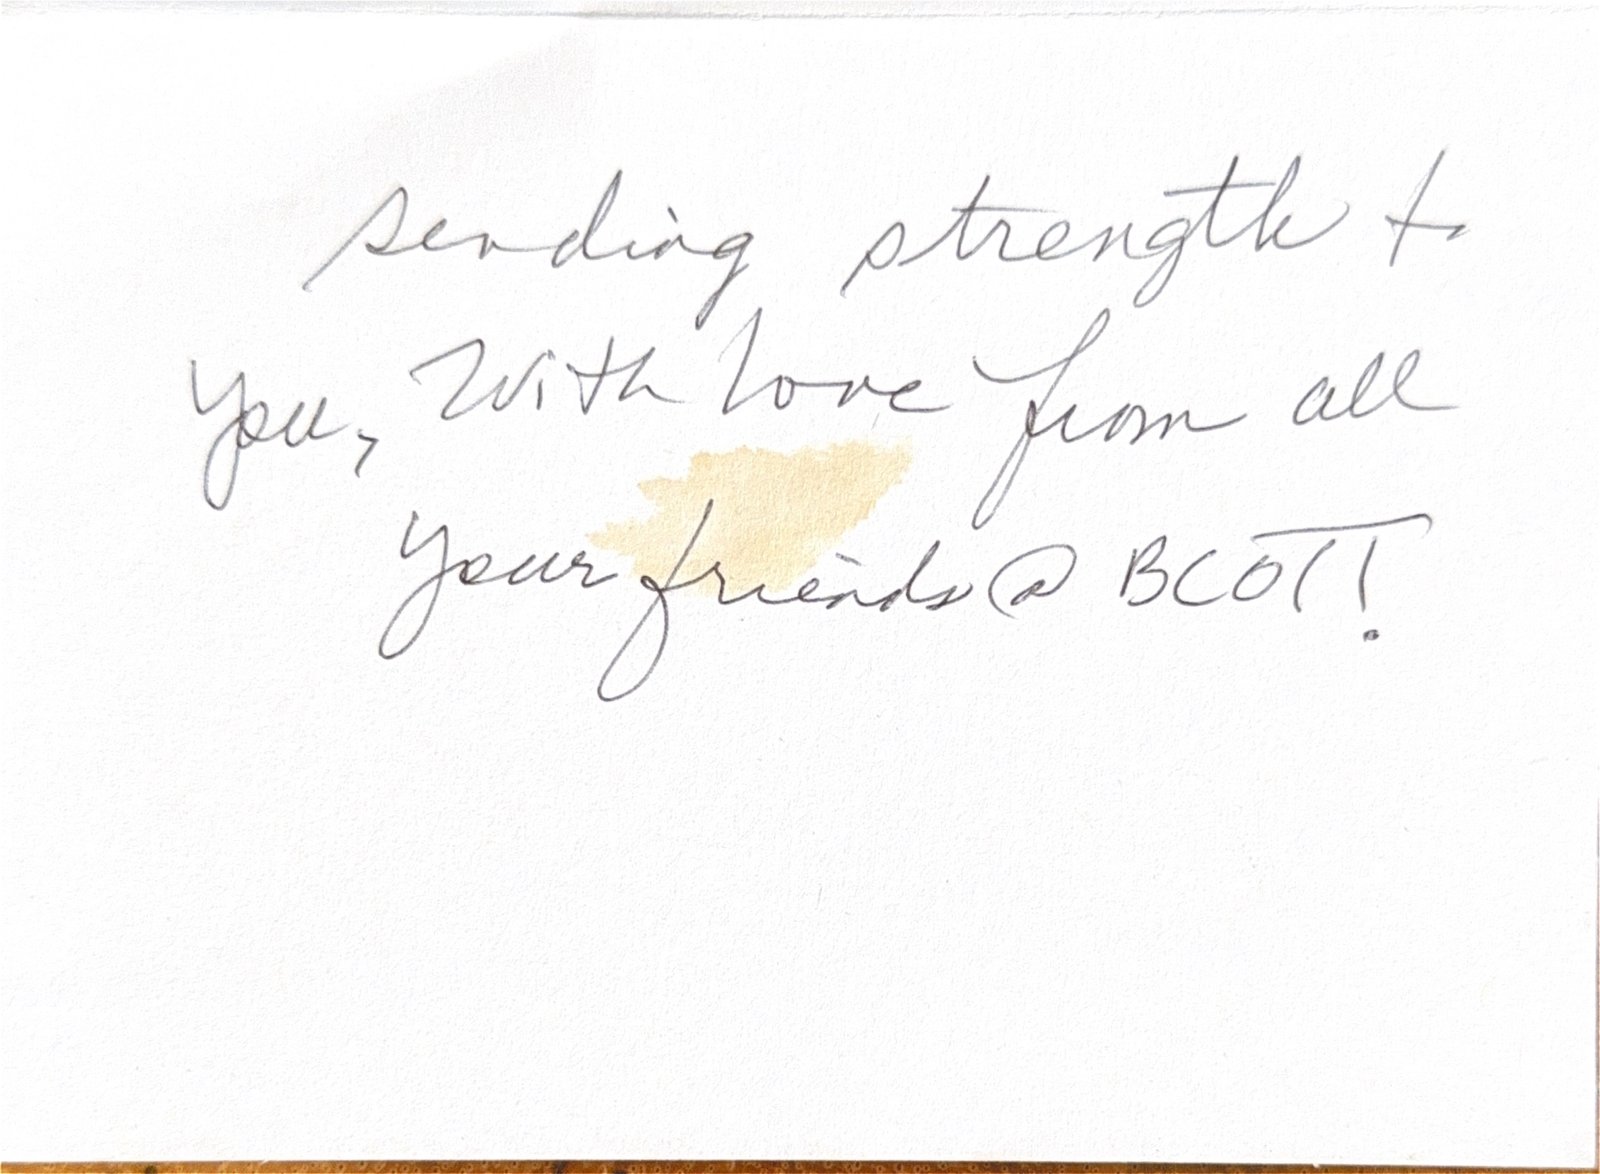 sending strength to
you, With love from all
your friends @ BCOT!